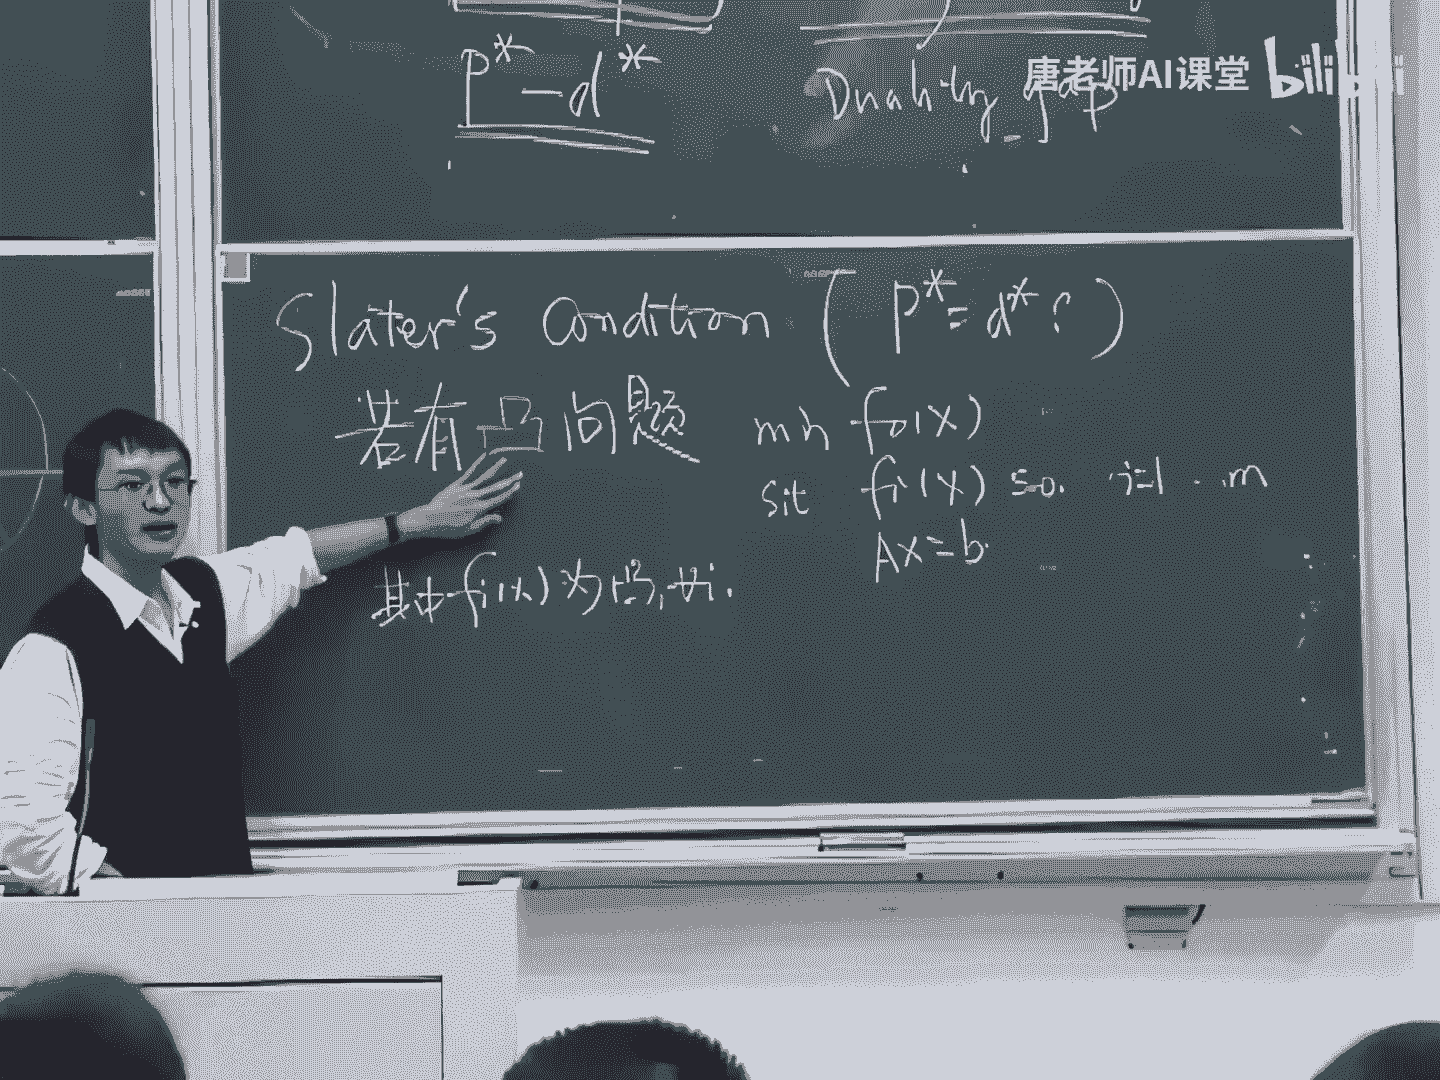 P* - d*
Duality gap
唐老师AI课堂 bilibili
Slater's Condition ( P* = d* ? )
若有凸问题 min f₀(x)
s.t fi(x) ≤ 0. i=1 .. m
Ax=b.
其中 fi(x) 为凸, ∀i.